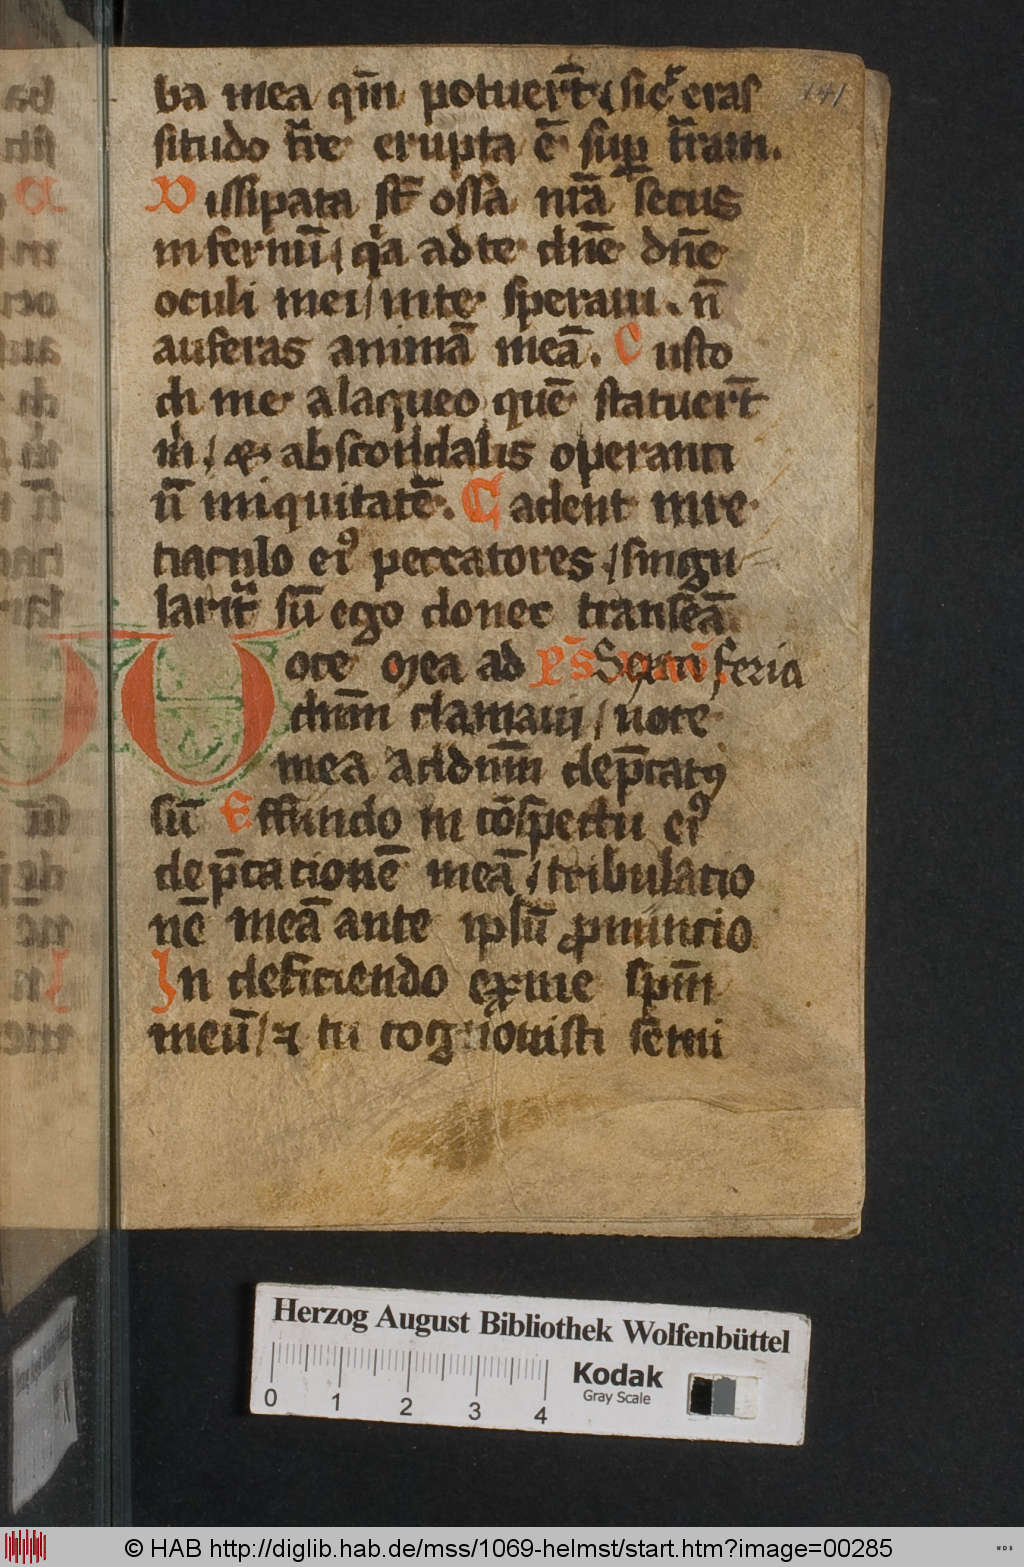 141
ba mea qm̄ potuer̄t / sic̄ eras
situdo t̄re erupta ē sup t̄ram.
Dissipata st̄ ossa nrā secus
infernū / qͥa ad te dn̄e dn̄e
oculi mei / in te speraui. n̄
auferas animā meā. Custo
di me a laqueo quē statuer̄t
m̄ / et ab scandalis operanti
ū iniquitatē. Cadent in re
tiaculo eiꝰ peccatores / singu
larit̄ sū ego donec transeā.
Uoce mea ad Sexta feria
dn̄m clamaui / uoce
mea ad dn̄m dep̄catꝰ
sū Effundo in cōspectu eiꝰ
dep̄cationē meā / tribulatio
nē meā ante ipsū ꝓnuncio
In deficiendo ex me sp̄m
meū / ⁊ tu cognouisti semi
Herzog August Bibliothek Wolfenbüttel
Kodak
Gray Scale
0 1 2 3 4
© HAB http://diglib.hab.de/mss/1069-helmst/start.htm?image=00285